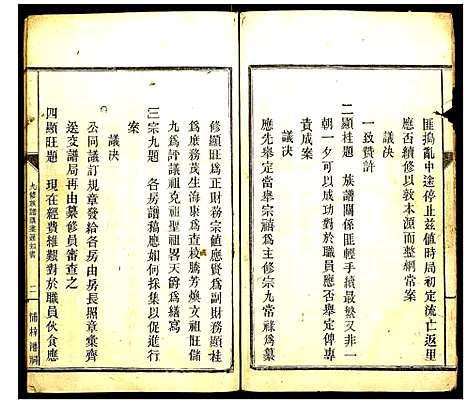 匪搗亂中途停止茲値時局初定流亡返里
應否續修以敦木源而整綱常案
議決
一致贊許
二顯桂題　族譜關係匪輕手續最繁斷非一
朝一夕可以成功對於職員應否舉定俾專
責成案
議決
應先舉定當舉宗禧爲主修宗九當祿爲纂
修顯旺爲正財務宗値應賓爲副財務顯桂
爲庶務茂生海梟爲查校騰芳煥文祖旺儲
九爲評議祖克祖聖祖畧天爵爲繕寫
三宗九題　各房譜稿應如何採集以促進行
案
議決
公同議訂規章發給各房由房長照章彙齊
送交譜局再由纂修員審查之
四顯旺題　現在經費維艱對於職員伙食應
九修族譜議案通知書
二